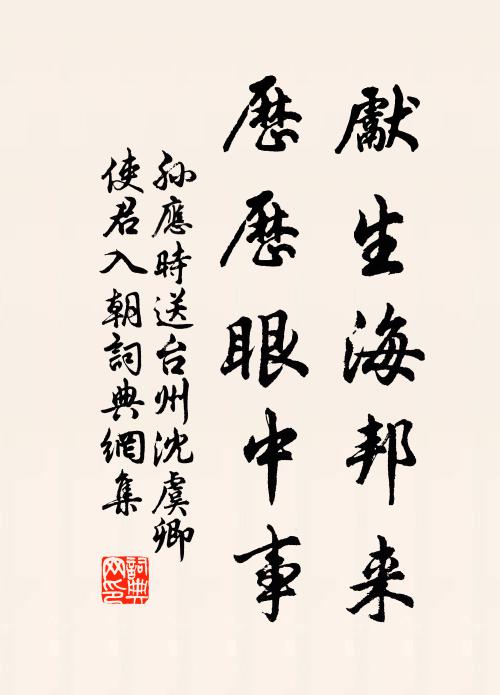 獻生海邦来
歷歷眼中事
孫應時送台州沈虞卿
使君入朝詞典網集
詞典网印